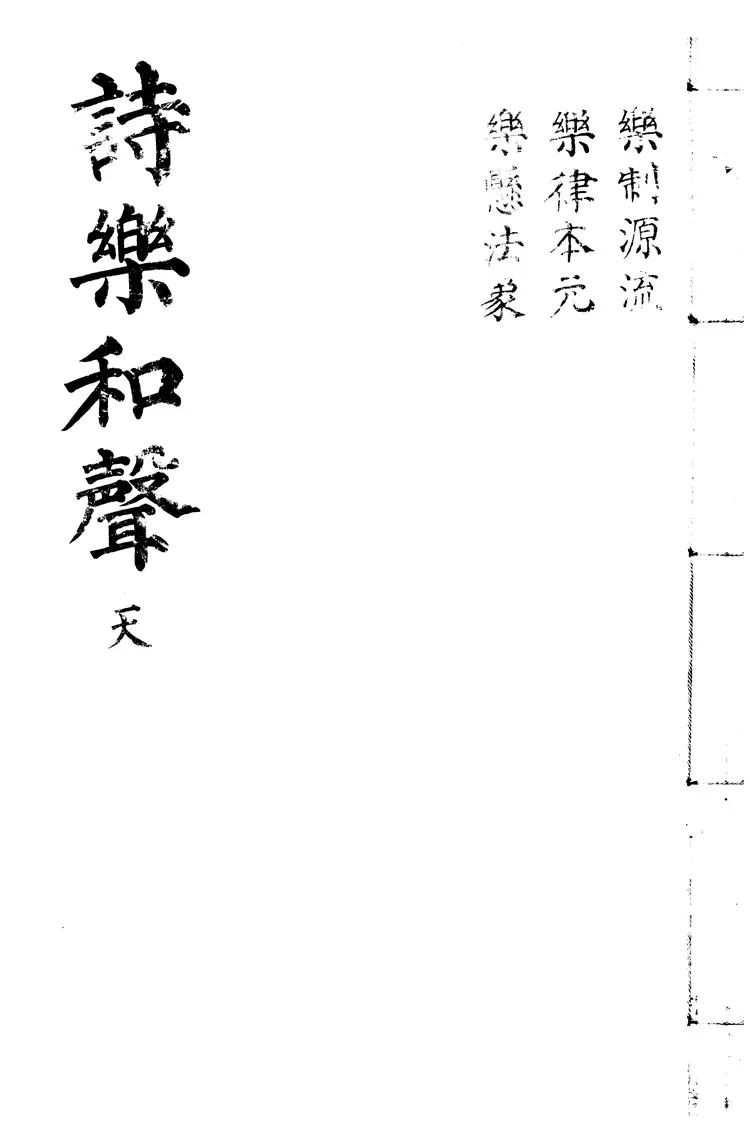 樂制源流
樂律本元
樂懸法象
詩樂和聲 天